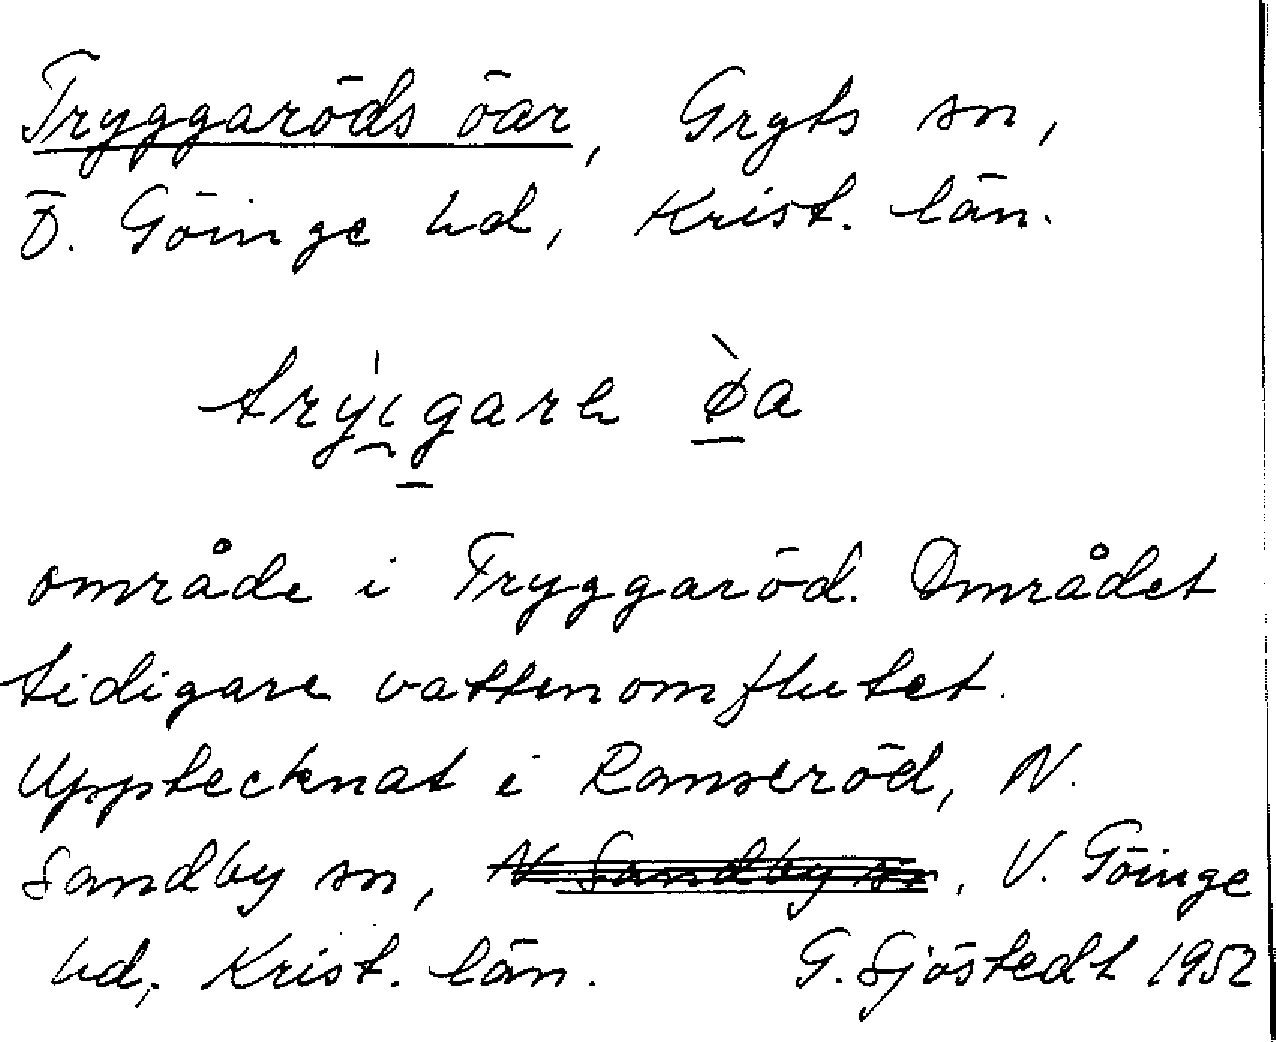 Tryggaröds öar, Gryts sn,
Ö. Göinge hd, Krist. län.
område i Tryggaröd. Området
tidigare vattenomflutet.
Upptecknat i Ramseröd, N.
Sandby sn, N Sandby sn, V. Göinge
hd, Krist. län. G. Sjöstedt 1952